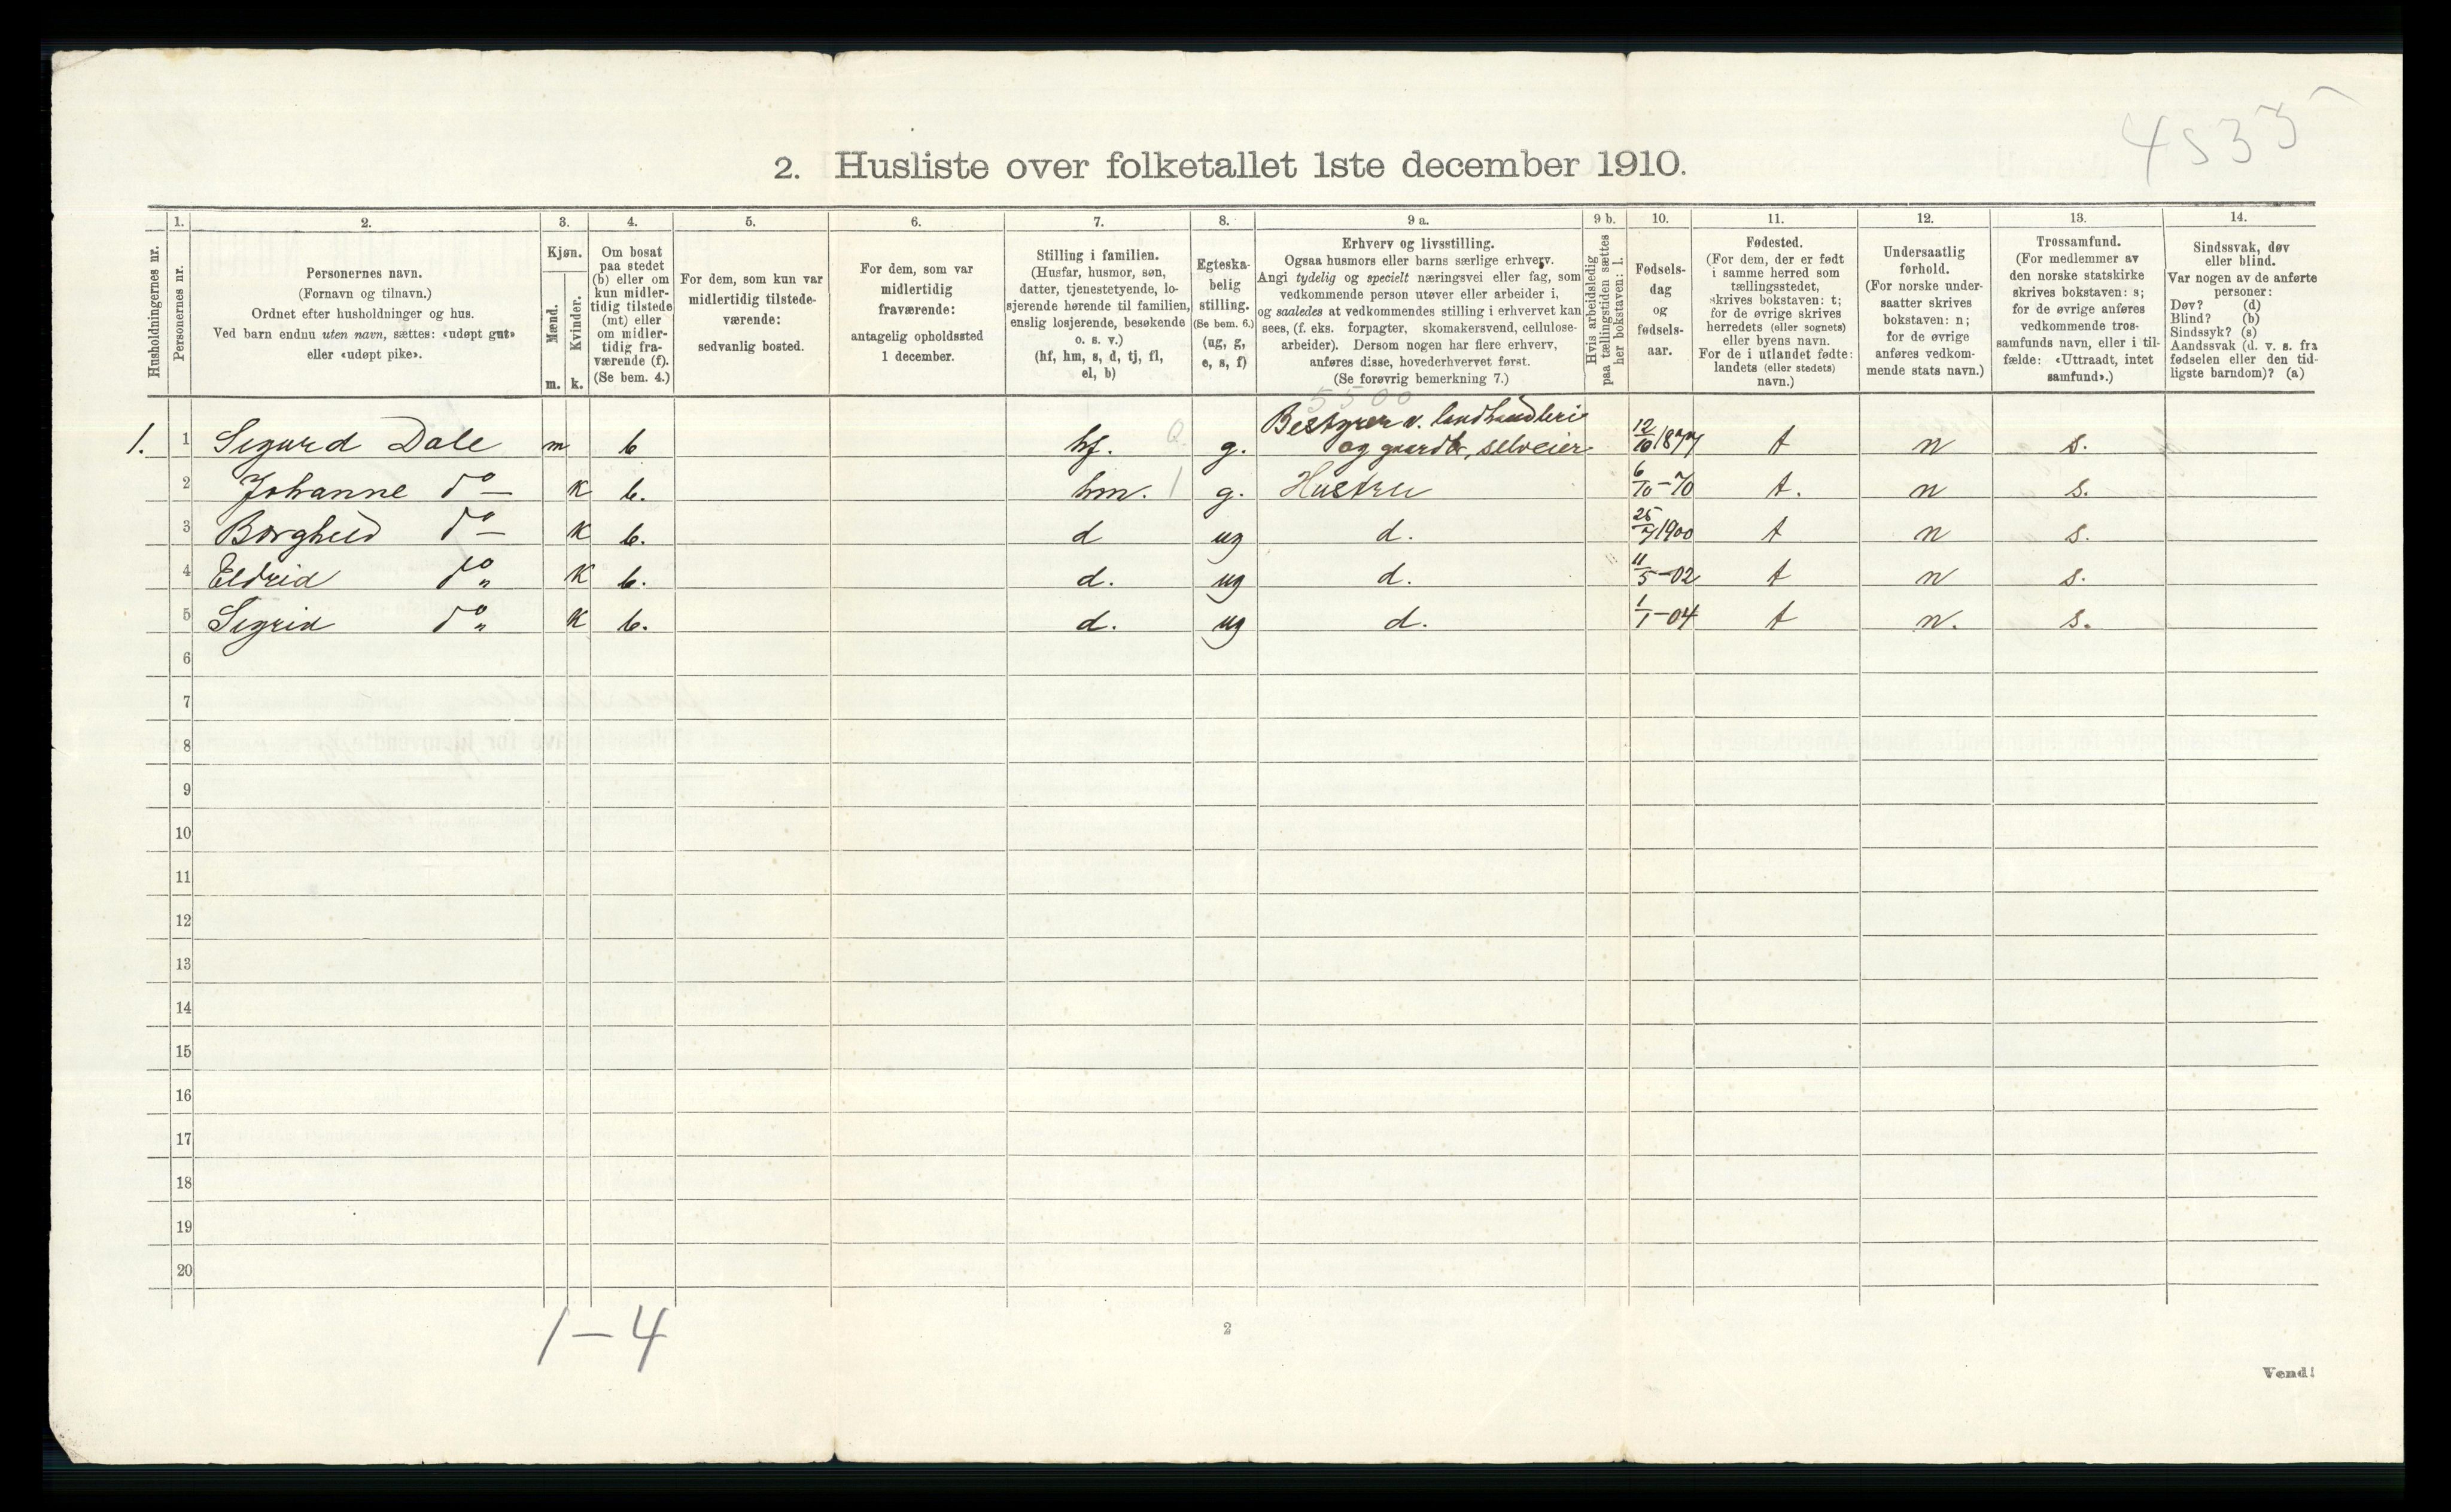 4535
2. Husliste over folketallet 1ste december 1910.
Husholdningernes nr.
1.
Personernes nr.
2.
Personernes navn.
(Fornavn og tilnavn.)
Ordnet efter husholdninger og hus.
Ved barn endnu uten navn, sættes: «udøpt gut»
eller «udøpt pike».
3.
Kjøn.
Mænd.
m.
Kvinder.
k.
4.
Om bosat
paa stedet
(b) eller om
kun midler-
tidig tilstede
(mt) eller
om midler-
tidig fra-
værende (f).
(Se bem. 4.)
5.
For dem, som kun var
midlertidig tilstede-
værende:
sedvanlig bosted.
6.
For dem, som var
midlertidig
fraværende:
antagelig opholdssted
1 december.
7.
Stilling i familien.
(Husfar, husmor, søn,
datter, tjenestetyende, lo-
sjerende hørende til familien,
enslig losjerende, besøkende
o. s. v.)
(hf, hm, s, d, tj, fl,
el, b)
8.
Egteska-
belig
stilling.
(Se bem. 6.)
(ug, g,
e, s, f)
9 a.
Erhverv og livsstilling.
Ogsaa husmors eller barns særlige erhverv.
Angi tydelig og specielt næringsvei eller fag, som
vedkommende person utøver eller arbeider i,
og saaledes at vedkommendes stilling i erhvervet kan
sees, (f. eks. forpagter, skomakersvend, cellulose-
arbeider). Dersom nogen har flere erhverv,
anføres disse, hovederhvervet først.
(Se forøvrig bemerkning 7.)
9 b.
Hvis arbeidsledig
paa tællingstiden sættes
her bokstaven: l.
10.
Fødsels-
dag
og
fødsels-
aar.
11.
Fødested.
(For dem, der er født
i samme herred som
tællingsstedet,
skrives bokstaven: t;
for de øvrige skrives
herredets (eller sognets)
eller byens navn.
For de i utlandet fødte:
landets (eller stedets)
navn.)
12.
Undersaatlig
forhold.
(For norske under-
saatter skrives
bokstaven: n;
for de øvrige
anføres vedkom-
mende stats navn.)
13.
Trossamfund.
(For medlemmer av
den norske statskirke
skrives bokstaven: s;
for de øvrige anføres
vedkommende tros-
samfunds navn, eller i til-
fælde: «Uttraadt, intet
samfund».)
14.
Sindssvak, døv
eller blind.
Var nogen av de anførte
personer:
Døv? (d)
Blind? (b)
Sindssyk? (s)
Aandssvak (d. v. s. fra
fødselen eller den tid-
ligste barndom)? (a)
5500
Bestyrer v. landhandleri
1. 1 Sigurd Dale m b hf. g. og gaardb, selveier 12/10 1877 t n s.
2 Johanne do — K b. hm. 1 g. Hustru 6/10 - 70 t. n s.
3 Borghild do — K b. d ug d. 25/7 1900 t n s.
4 Eldrid do „ K b. d. ug d. 11/5 - 02 t n s.
5 Sigrid do „ K b. d. ug d. 1/1 - 04 t n. s.
6
7
8
9
10
11
12
13
14
15
16
17
18
19
20
1 — 4
2
Vend!